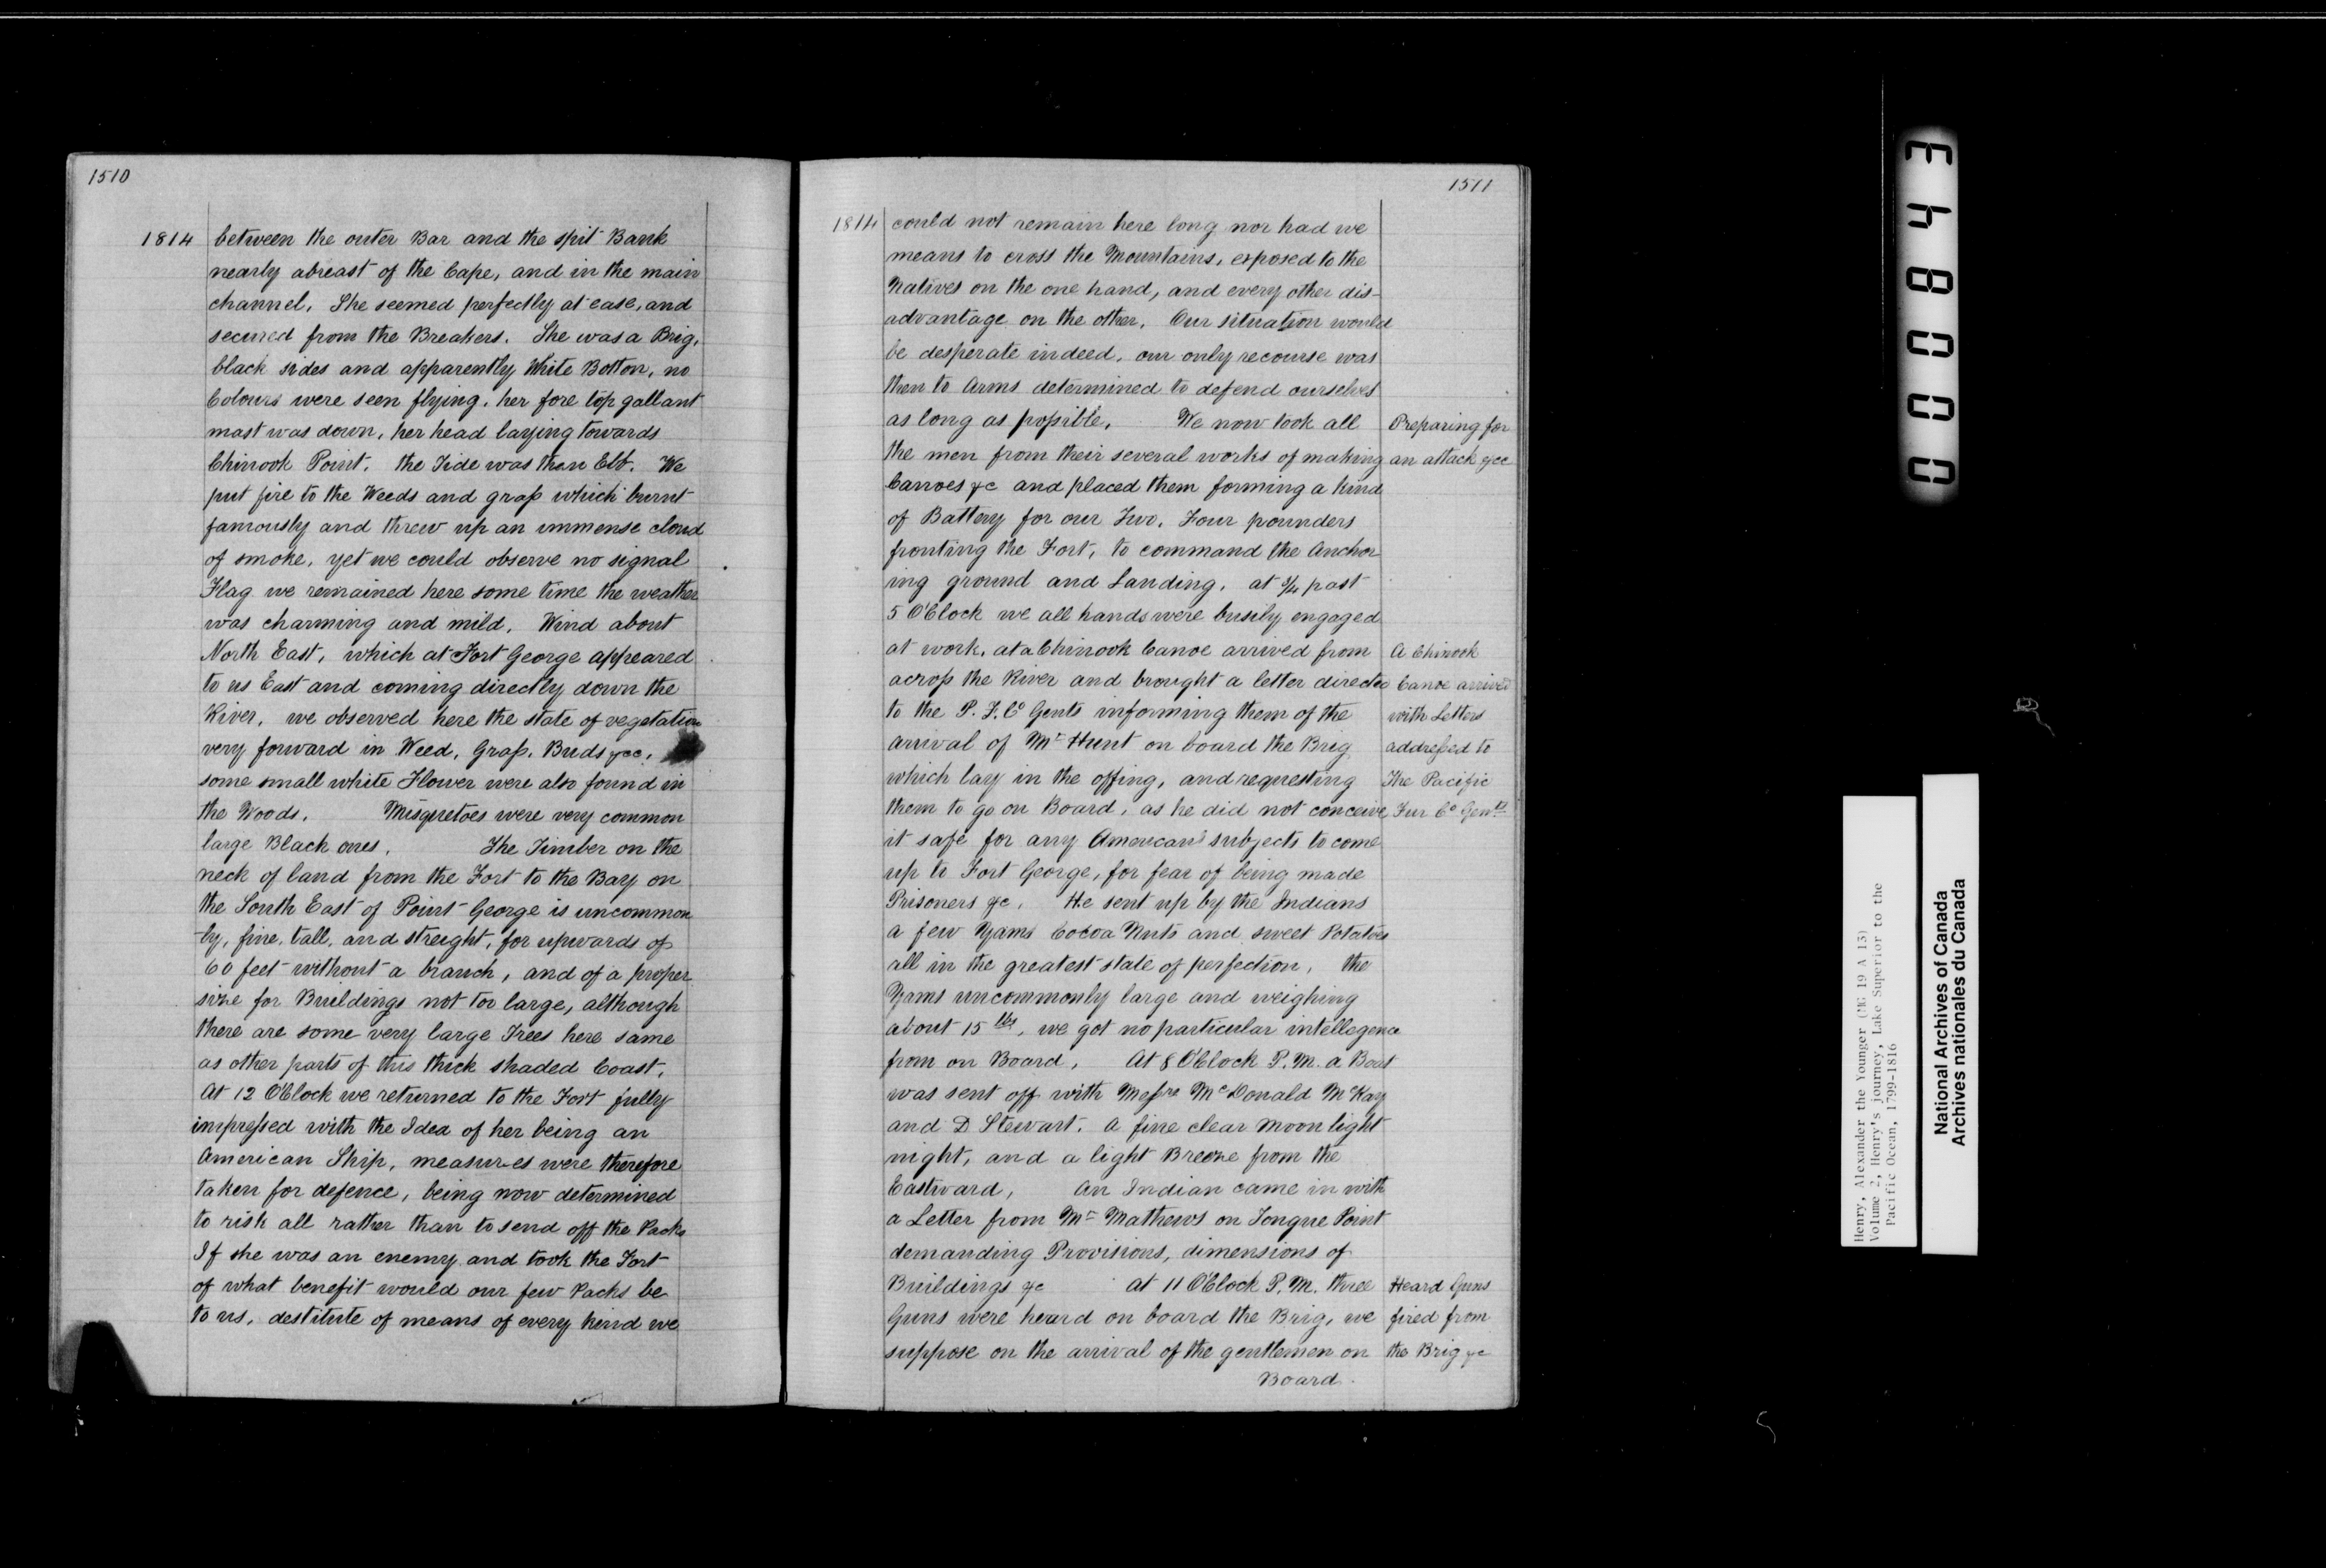 1510
1814
between the outer Bar and the spit Bank
nearly abreast of the Cape, and in the main
channel. She seemed perfectly at ease, and
secured from the Breakers. She was a Brig,
black sides and apparently White Botton, no
Colours were seen flying, her fore top gallant
mast was down, her head laying towards
Chinook Point. the Tide was then Ebb. We
put fire to the Weeds and grass which burnt
famously and threw up an immense cloud
of smoke, yet we could observe no signal
Flag we remained here some time the weather
was charming and mild. Wind about
North East, which at Fort George appeared
to us East and coming directly down the
River, we observed here the state of vegetation
very forward in Weed, Grass, Buds &cc.
some small white Flower were also found in
the Woods. Misquetoes were very common
large Black ones. The Timber on the
neck of land from the Fort to the Bay on
the South East of Point George is uncommon
-ly, fine, tall, and streight, for upwards of
60 feet without a branch, and of a proper
size for Buildings not too large, although
there are some very large Trees here same
as other parts of this thick shaded Coast.
At 12 O'Clock we returned to the Fort fully
impressed with the Idea of her being an
American Ship, measures were therefore
taken for defence, being now determined
to risk all rather than to send off the Packs
If she was an enemy and took the Fort
of what benefit would our few Packs be
to us, destitute of means of every kind we
1511
1814
could not remain here long nor had we
means to cross the Mountains, exposed to the
Natives on the one hand, and every other dis-
advantage on the other. Our situation would
be desperate indeed, our only recourse was
then to Arms determined to defend ourselves
as long as possible. We now took all
the men from their several works of making
Canoes &c and placed them forming a kind
of Battery for our Two, Four pounders
fronting the Fort, to command the Anchor
ing ground and Landing. at 3/4 past
5 O'Clock we all hands were busily engaged
at work, at a Chinook Canoe arrived from
across the River and brought a letter directed
to the P. F. Co Gents informing them of the
arrival of Mr Hunt on board the Brig
which lay in the offing, and requesting
them to go on Board, as he did not conceive
it safe for any American subjects to come
up to Fort George, for fear of being made
Prisoners &c. He sent up by the Indians
a few Yams Cocoa Nuts and sweet Potatoes
all in the greatest state of perfection, the
Yams uncommonly large and weighing
about 15 lbs, we got no particular intellegence
from on Board. At 8 O'Clock P.M. a Boat
was sent off with Messrs McDonald McKay
and D Stewart. A fine clear moonlight
night, and a light Breeze from the
Eastward. An Indian came in with
a Letter from Mr Mathews on Tongue Point
demanding Provisions, dimensions of
Buildings &c at 11 O'Clock P.M. three
Guns were heard on board the Brig, we
suppose on the arrival of the gentlemen on
Board.
Preparing for
an attack &cc
A Chinook
Canoe arrived
with Letters
addressed to
The Pacific
Fur Co Gents
Heard Guns
fired from
the Brig &c
000843
Henry, Alexander the Younger (MG 19 A 13)
Volume 2, Henry's journey, Lake Superior to the
Pacific Ocean, 1799-1816
National Archives of Canada
Archives nationales du Canada